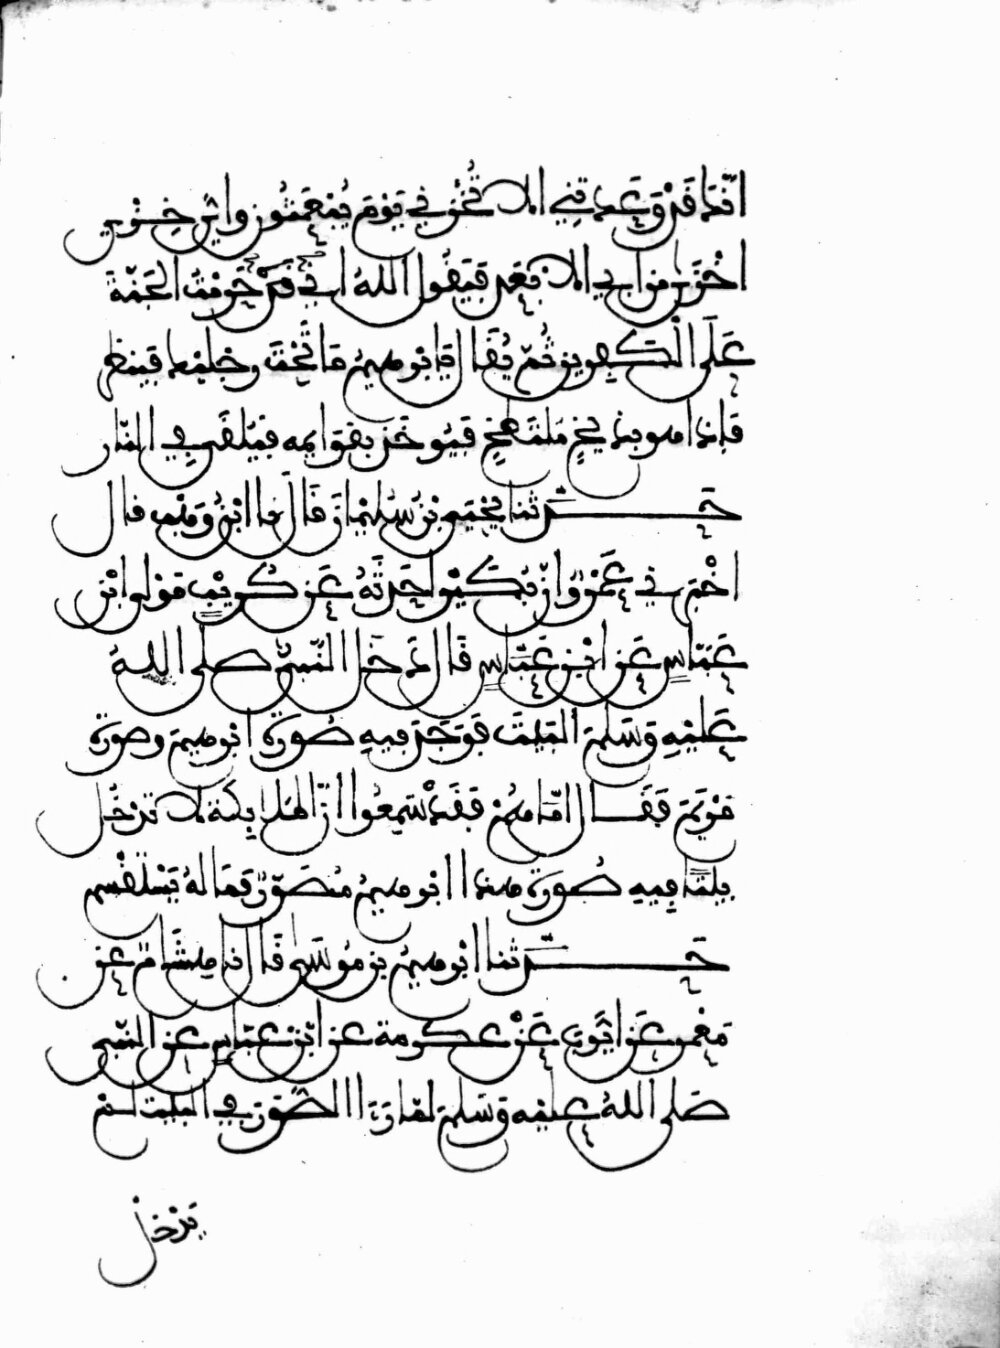 انك قد وعدتني الا تخزني يوم يبعثون واي خزي
اخزى من ابي الا بعد فيقول الله اني قد حرمت الجنة
على الكافرين ثم يقال يا ابرهيم ما تحت رجليك فينظر
فاذا هو بذيخ ملتطخ فيوخذ بقوايمه فيلقى في النار
حدثنا يحيى بن سليمان قال نا ابن وهب قال
اخبرني عمرو ان بكيرا حدثه عن كريب مولى ابن
عباس عن ابن عباس قال دخل النبي صلى الله
عليه وسلم البيت فوجد فيه صورة ابرهيم وصورة
مريم فقال اما هم فقد سمعوا ان الملايكة لا تدخل
بيتا فيه صورة هذا ابرهيم مصور فما له يستقسم
حدثنا ابرهيم بن موسى قال نا هشام عن
معمر عن ايوب عن عكرمة عن ابن عباس عن النبي
صلى الله عليه وسلم لما راا الصور في البيت لم
يدخل